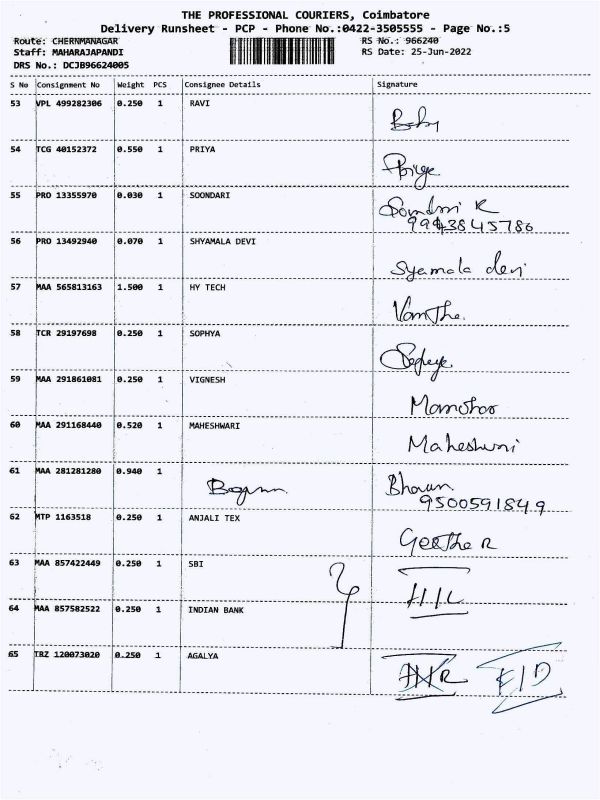 THE PROFESSIONAL COURIERS, Coimbatore
Delivery Runsheet - PCP - Phone No.:0422-3505555 - Page No.:5
Route: CHERNMANAGAR RS No.: 966240
Staff: MAHARAJAPANDI RS Date: 25-Jun-2022
DRS No.: DCJB96624005
S No Consignment No Weight PCS Consignee Details Signature
53 VPL 499282306 0.250 1 RAVI
54 TCG 40152372 0.550 1 PRIYA
55 PRO 13355970 0.030 1 SOONDARI
9943845786
56 PRO 13492940 0.070 1 SHYAMALA DEVI Syamala devi
57 MAA 565813163 1.500 1 HY TECH
58 TCR 29197698 0.250 1 SOPHYA
59 MAA 291861081 0.250 1 VIGNESH
60 MAA 291168440 0.520 1 MAHESHWARI
61 MAA 281281280 0.940 1
9500591849
62 MTP 1163518 0.250 1 ANJALI TEX Geetha R
63 MAA 857422449 0.250 1 SBI
64 MAA 857582522 0.250 1 INDIAN BANK
65 TBZ 120073020 0.250 1 AGALYA